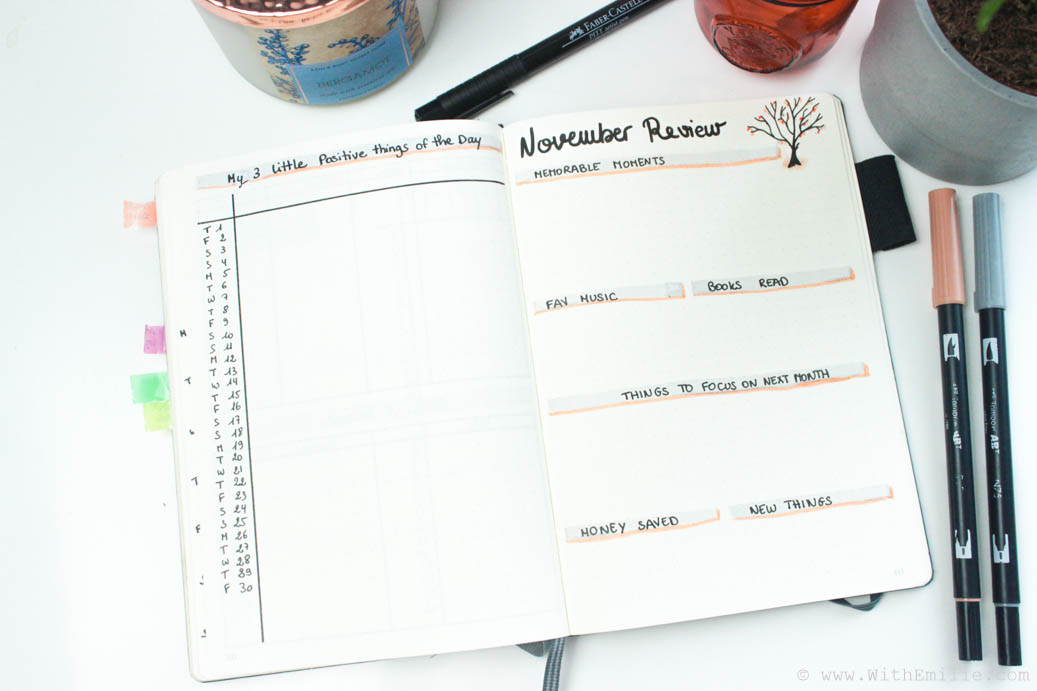 BERGAMOT
FABER-CASTELL
PITT artist pen
My 3 Little Positive things of the Day
T 1
F 2
S 3
S 4
M 5
T 6
W 7
T 8
F 9
S 10
S 11
M 12
T 13
W 14
T 15
F 16
S 17
S 18
M 19
T 20
W 21
T 22
F 23
S 24
S 25
M 26
T 27
W 28
T 29
F 30
M
T
T
F
November Review
MEMORABLE MOMENTS
FAV MUSIC
BOOKS READ
THINGS TO FOCUS ON NEXT MONTH
MONEY SAVED
NEW THINGS
ABT
ABT
N75
© www.WithEmilie.com